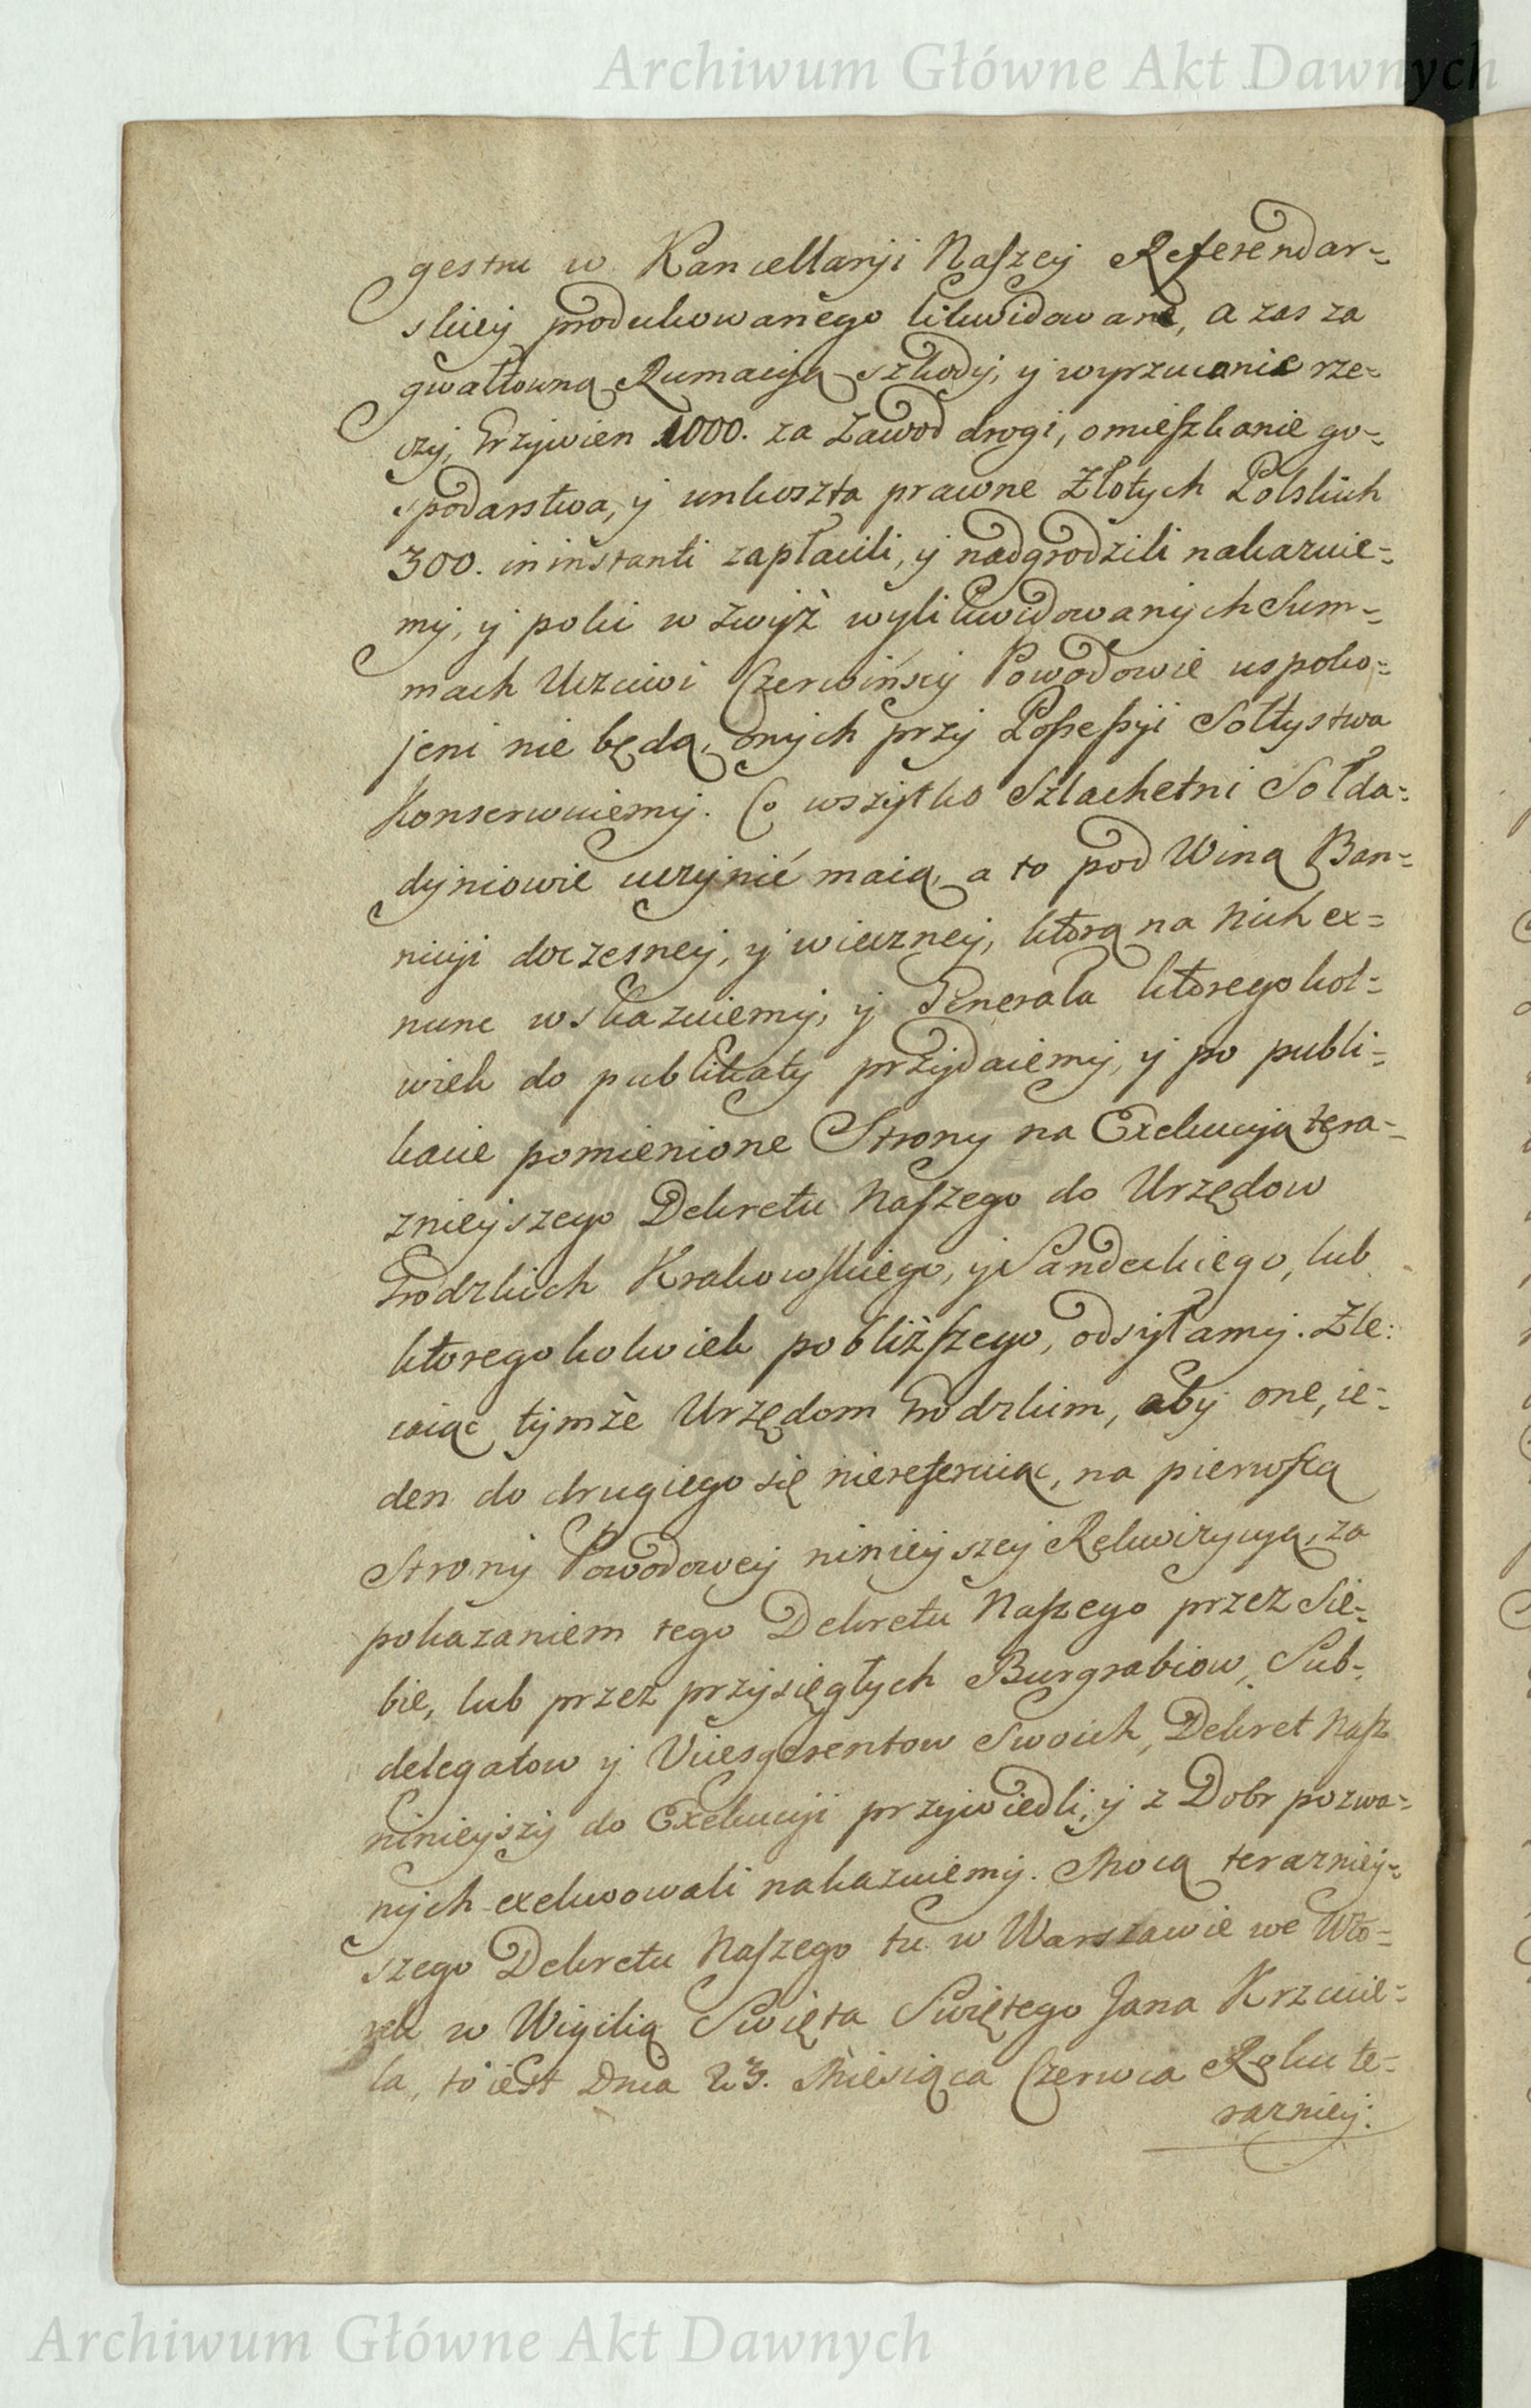 Archiwum Główne Akt Dawnych
gestru w Kancellaryi Naszey Referendar=
skiey produkowanego likwidowane, a zas za
gwałtowną Rumacyą szkody, y wyrzucenie rze=
czy, Grzywien 1000. za Zawod drogi, omieszkanie go=
spodarstwa, y unkoszta prawne Złotych Polskich
300. in instanti zapłacili, y nadgrodzili nakazuie=
my, y poki w zwyż wylikwidowanych Sum=
mach Uczciwi Czerwińscy Powodowie uspoko=
jeni nie będą, onych przy Possessyi Sołtystwa
konserwuiemy. Co wszytko Szlachetni Sołda=
dyniowie uczynić maią, a to pod Winą Ban=
nicyi doczesney, y wieczney, którą na Nich ex=
nunc wskazuiemy, y Generała ktoregokol=
wiek do publikaty przydaiemy, y po publi=
kacie pomienione Strony na Exekucyą tera=
znieyszego Dekretu Naszego do Urzędow
Grodzkich Krakowskiego, y Sandeckiego, lub
ktoregokolwiek pobliższego, odsyłamy. Zle=
caiąc tymże Urzędom Grodzkim, aby one, ie=
den do drugiego się niereferuiąc, na pierwszą
Strony Powodowey ninieyszey Rekwizycyą, za
pokazaniem tego Dekretu Naszego przez Sie=
bie, lub przez przysięgłych Burgrabiow, Sub=
delegatow y Vicesgerentow Swoich, Dekret Nasz
ninieyszy do Exekucyi przywiedli, y z Dobr pozwa=
nych exekwowali nakazuiemy. Mocą terazniey=
szego Dekretu Naszego tu w Warszawie we Wto=
rek w Wigilią Swięta Swiętego Jana Krzcicie=
la, to iest Dnia 23. Miesiąca Czerwca Roku te=
razniey:
Archiwum Główne Akt Dawnych